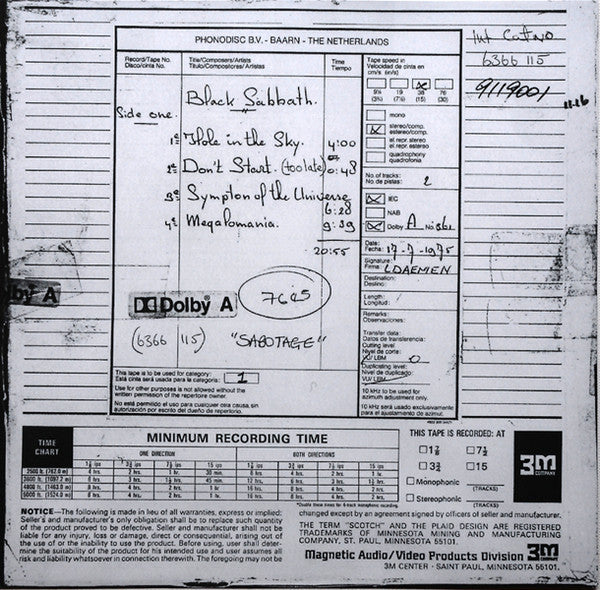 PHONODISC B.V. - BAARN - THE NETHERLANDS
Int Cat No
6366 115
9119001
11.16
Record/Tape No.
Disco/cinta No.
Title/Composers/Artists
Titulo/Compositores/Artistas
Time
Tiempo
Tape speed
Velocidad de cinta en
cm/s (in/s)
9½ 19 38 76
(3¾) (7½) (15) (30)
Black Sabbath.
Side one.
1e Hole in the Sky. 4:00
2e Don't Start. (too late) 0:48
3e Sympton of the Universe
6:28
4e Megalomania. 9:39
20:55
mono
stereo/comp.
estereo/comp.
el. repr. stereo
el. repr. estereo
quadrophony
quadrafonia
No. of tracks:
No. de pistas: 2
IEC
NAB
Dolby A No
Date:
Fecha: 17-7-1975
Signature:
Firma: L DAEMEN
Destination:
Destino:
Length:
Longitud:
Remarks:
Observaciones:
Transfer data:
Datos de transferencia:
Cutting level
Nivel de corte:
VU/LBM 0
Duplicating level:
Nivel de duplicado:
VU/LBM
10 kHz to be used for
azimuth adjustment only.
10 kHz será usado exclusivamente
para el ajustamiento de azimut.
by A
Dolby A
7625
(6366 115) "SABOTAGE"
This tape is to be used for category: 1
Está cinta será usada para la categoria:
Use for other purposes is not allowed without the
written permission of the repertoire owner.
No está permitido el uso para cualquier otra causa, sin
autorización por escrito del dueño de repertorio.
TIME
CHART
MINIMUM RECORDING TIME
ONE DIRECTION BOTH DIRECTIONS
1⅞ ips 3¾ ips 7½ ips 15 ips 1⅞ ips 3¾ ips 7½ ips 15 ips
2500 ft. (762.0 m)
3600 ft. (1097.2 m)
4800 ft. (1463.0 m)
5000 ft. (1524.0 m)
THIS TAPE IS RECORDED AT:
1⅞ 7½
3¾ 15
Monophonic
(TRACKS)
Stereophonic
(TRACKS)
3M
COMPANY
NOTICE—The following is made in lieu of all warranties, express or implied:
Seller's and manufacturer's only obligation shall be to replace such quantity
of product proved to be defective. Seller and manufacturer shall not be
liable for any injury, loss or damage, direct or consequential, arising out of
the use of or the inability to use the product. Before using, user shall deter-
mine the suitability of the product for his intended use and user assumes all
risk and liability whatsoever in connection therewith. The foregoing may not be
changed except by an agreement signed by officers of seller and manufacturer.
THE TERM "SCOTCH" AND THE PLAID DESIGN ARE REGISTERED
TRADEMARKS OF MINNESOTA MINING AND MANUFACTURING
COMPANY, ST. PAUL, MINNESOTA 55101.
Magnetic Audio/Video Products Division 3M
3M CENTER · SAINT PAUL, MINNESOTA 55101.